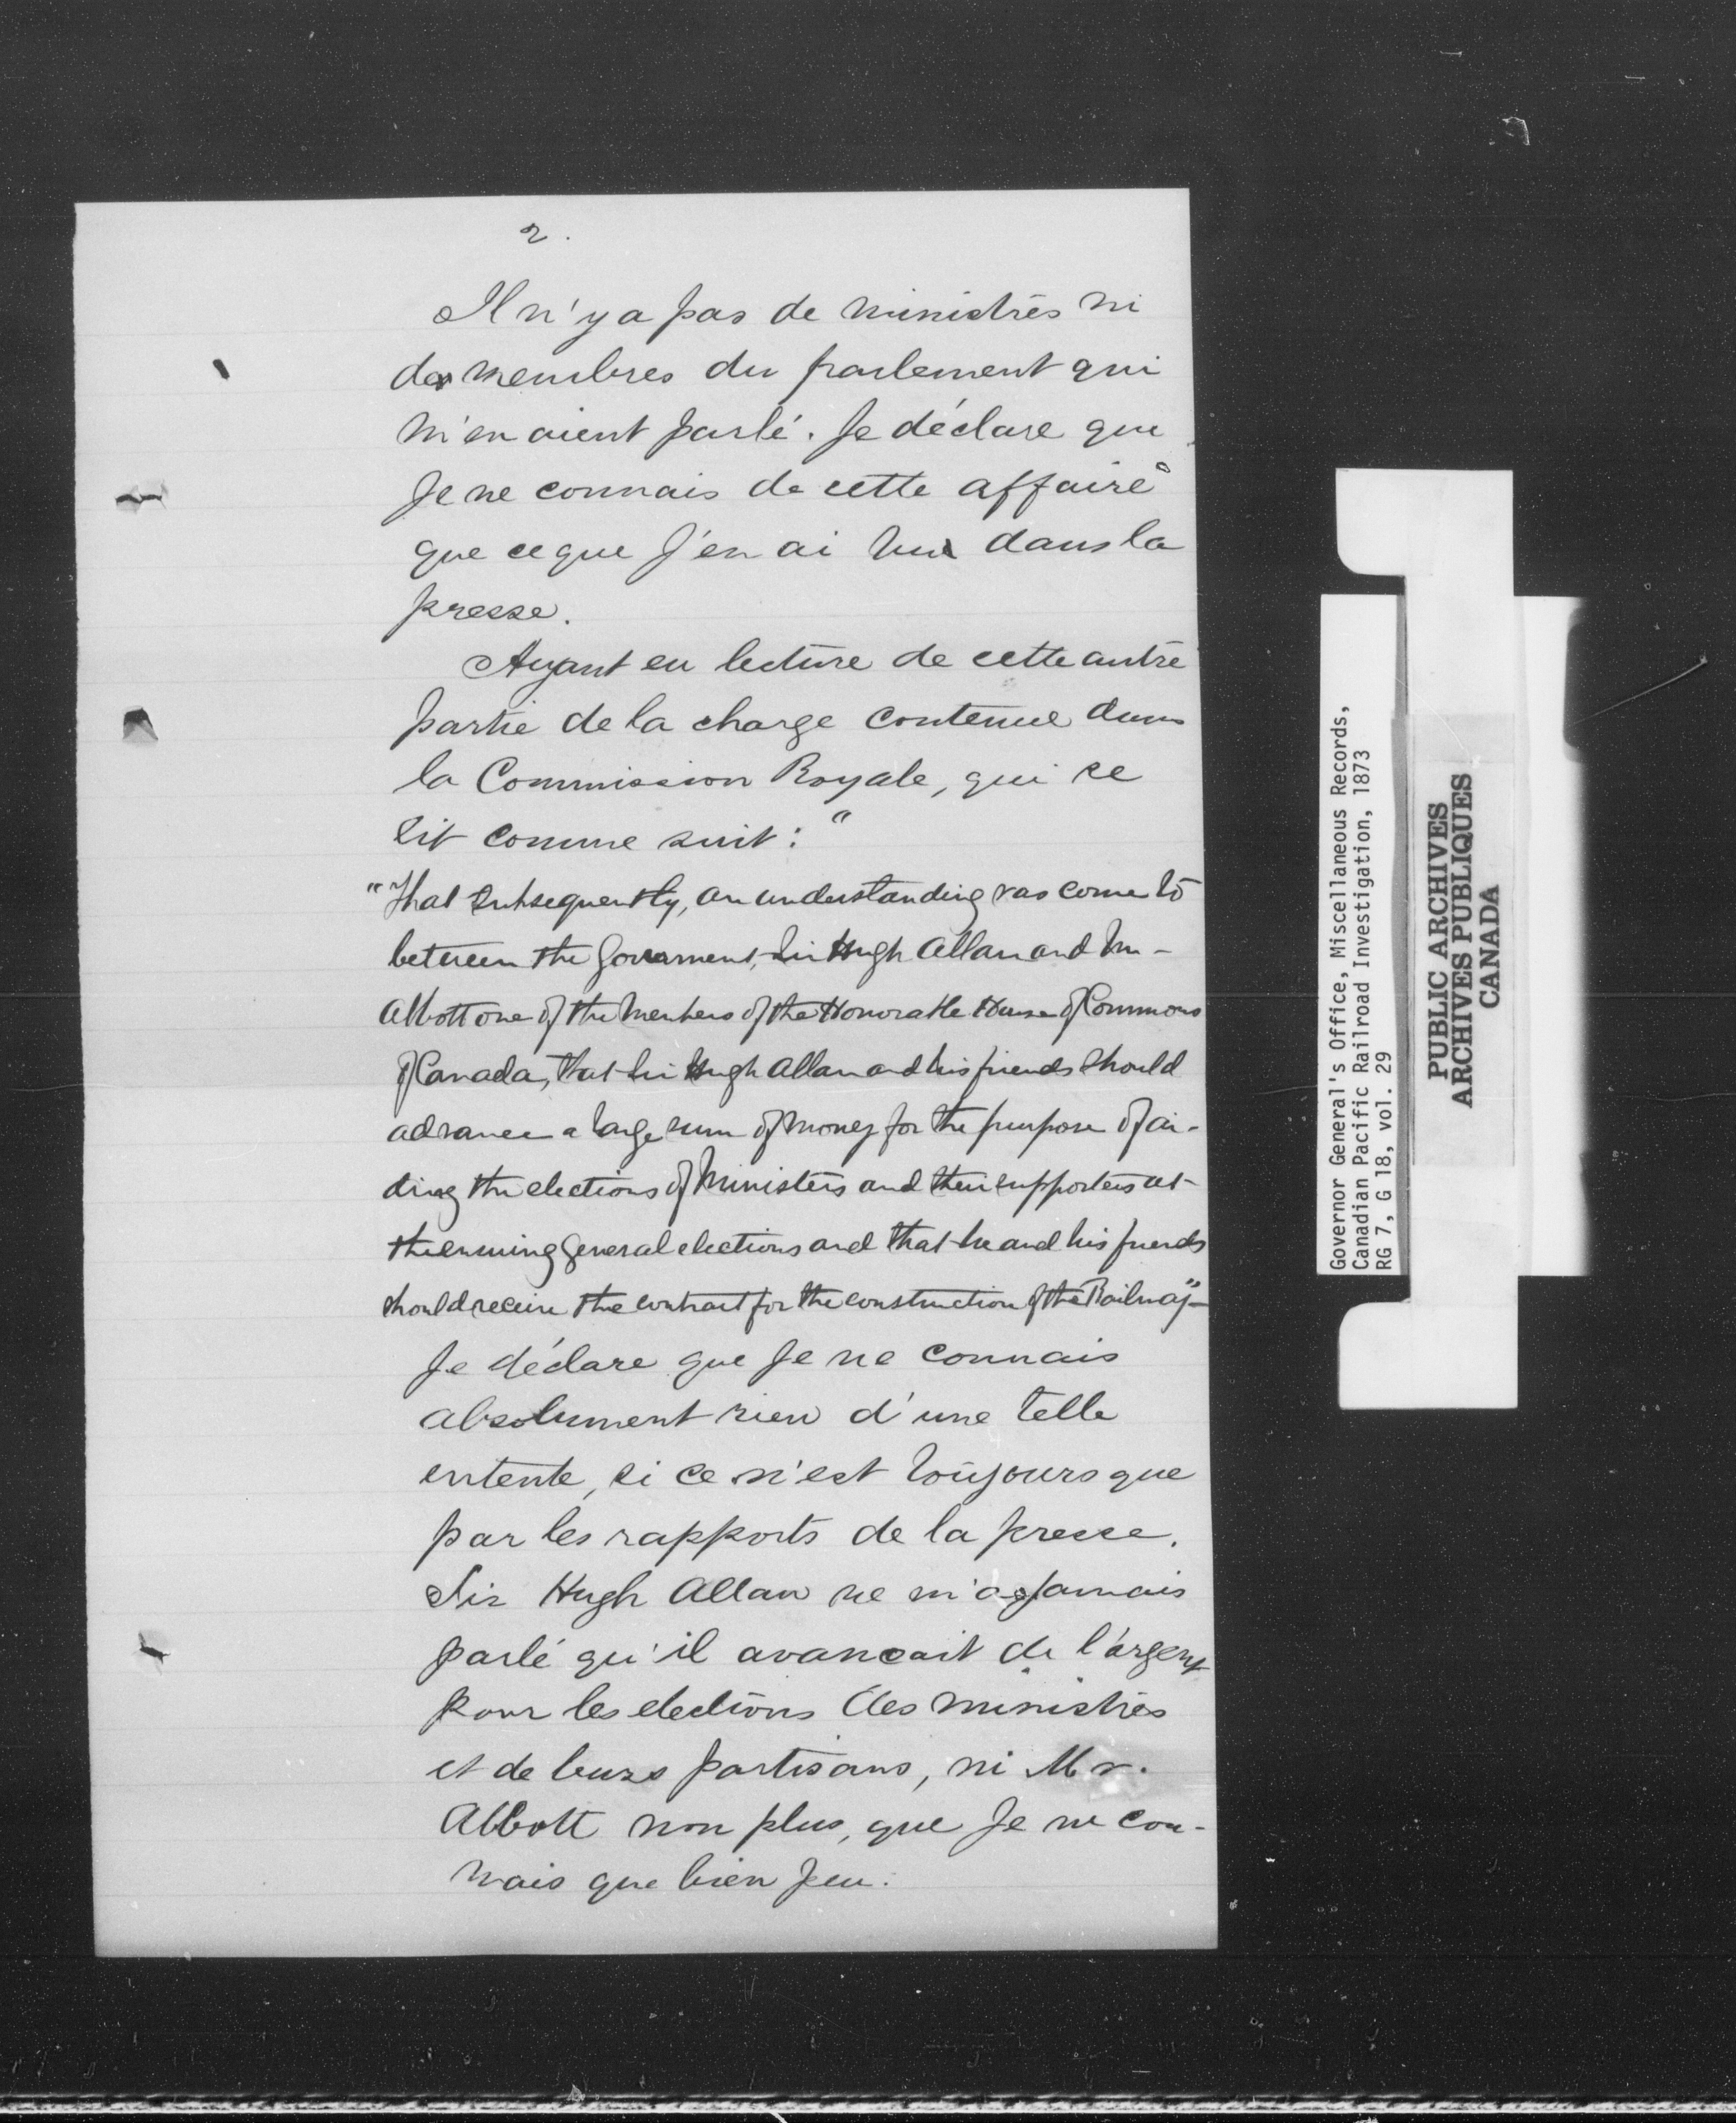 2.
Il n'y a pas de ministres ni
des membres du parlement qui
m'en aient parlé. Je déclare que
Je ne connais de cette affaire
que ce que J'en ai vu dans la
presse.
Ayant eu lecture de cette autre
partie de la charge contenue dans
la Commission Royale, qui se
lit comme suit : "
"That subsequently, an understanding was come to
between the Government, Sir Hugh Allan and Mr-
Abbott one of the Members of the Honorable House of Commons
of Canada, that Sir Hugh Allan and his friends should
advance a large sum of money for the purpose of ai-
ding the elections of Ministers and their supporters at
the ensuing General elections and that he and his friends
should receive the contract for the construction of the Railway"-
Je déclare que Je ne connais
absolument rien d'une telle
entente, si ce n'est toujours que
par les rapports de la presse.
Sir Hugh Allan ne m'a Jamais
parlé qu'il avancait de l'argent
pour les elections des ministres
et de leurs partisans, ni Mr.
Abbott non plus, que Je ne con-
nais que bien peu.
Governor General's Office, Miscellaneous Records,
Canadian Pacific Railroad Investigation, 1873
RG 7, G 18, vol. 29
PUBLIC ARCHIVES
ARCHIVES PUBLIQUES
CANADA